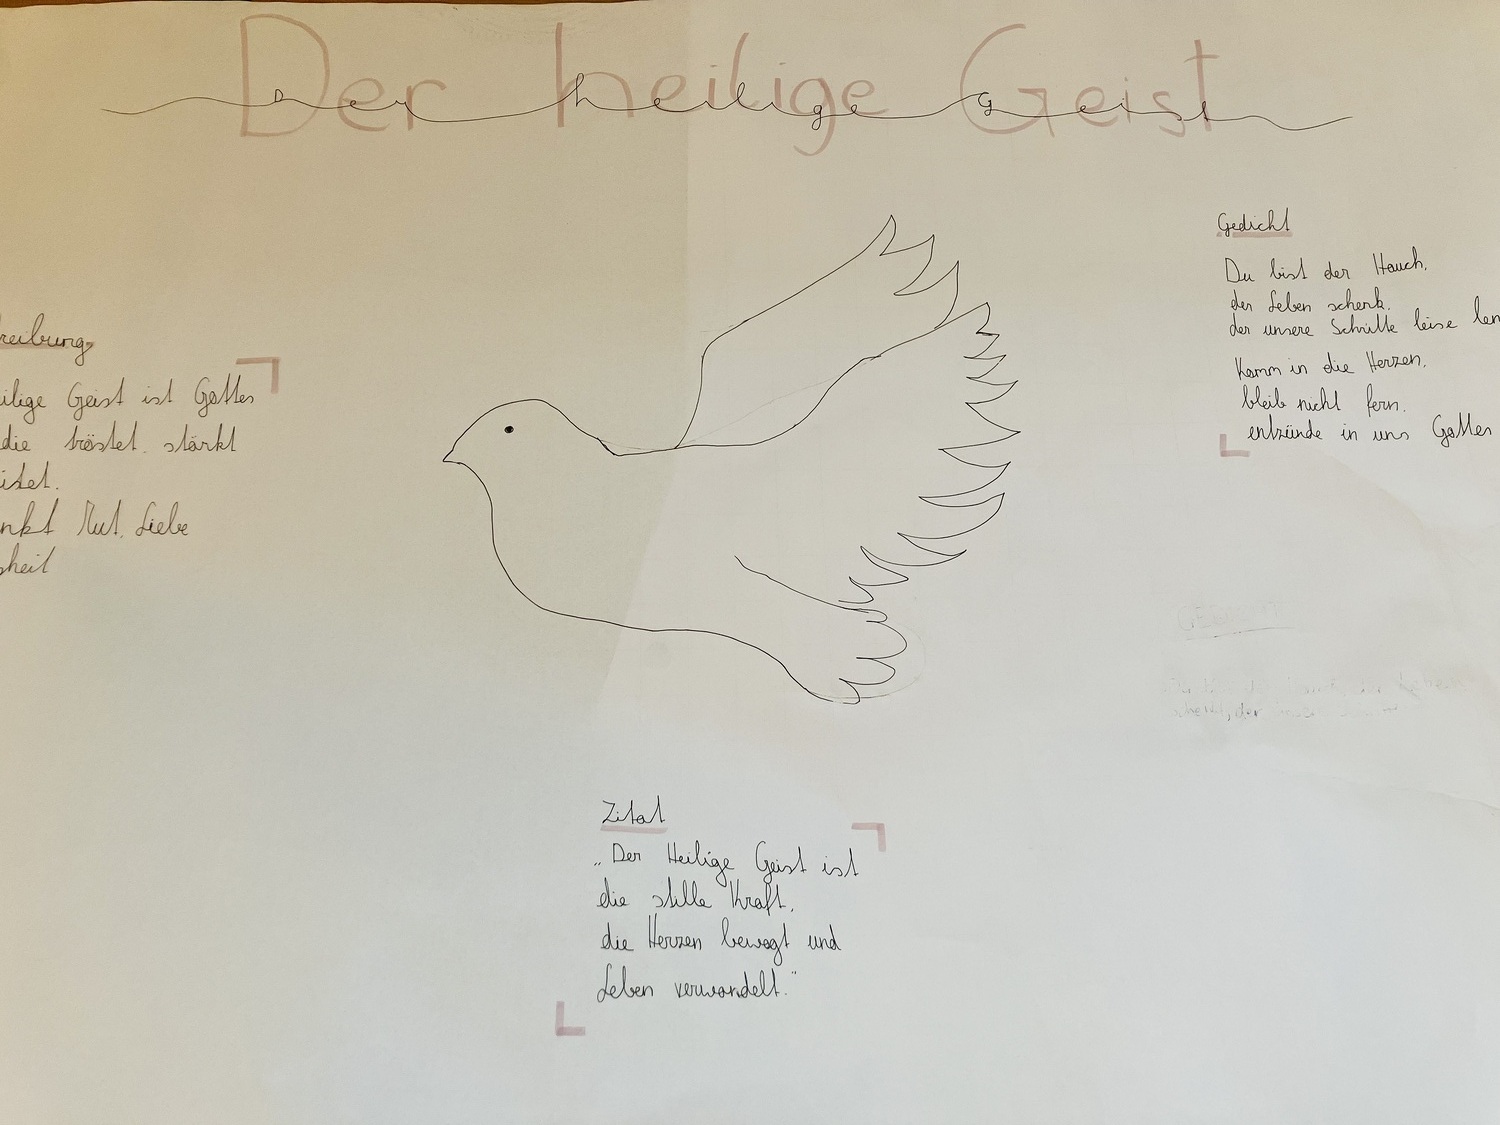 Der heilige Geist
der heilige Geist
reibung
eilige Geist ist Gottes
die tröstet, stärkt
itet.
nkt Mut, Liebe
sheit
Gedicht
Du bist der Hauch,
der Leben schenk.
der unsere Schritte leise len
Komm in die Herzen,
bleib nicht fern.
entzünde in uns Gottes
Zitat
„Der Heilige Geist ist
die stille Kraft,
die Herzen bewegt und
Leben verwandelt."